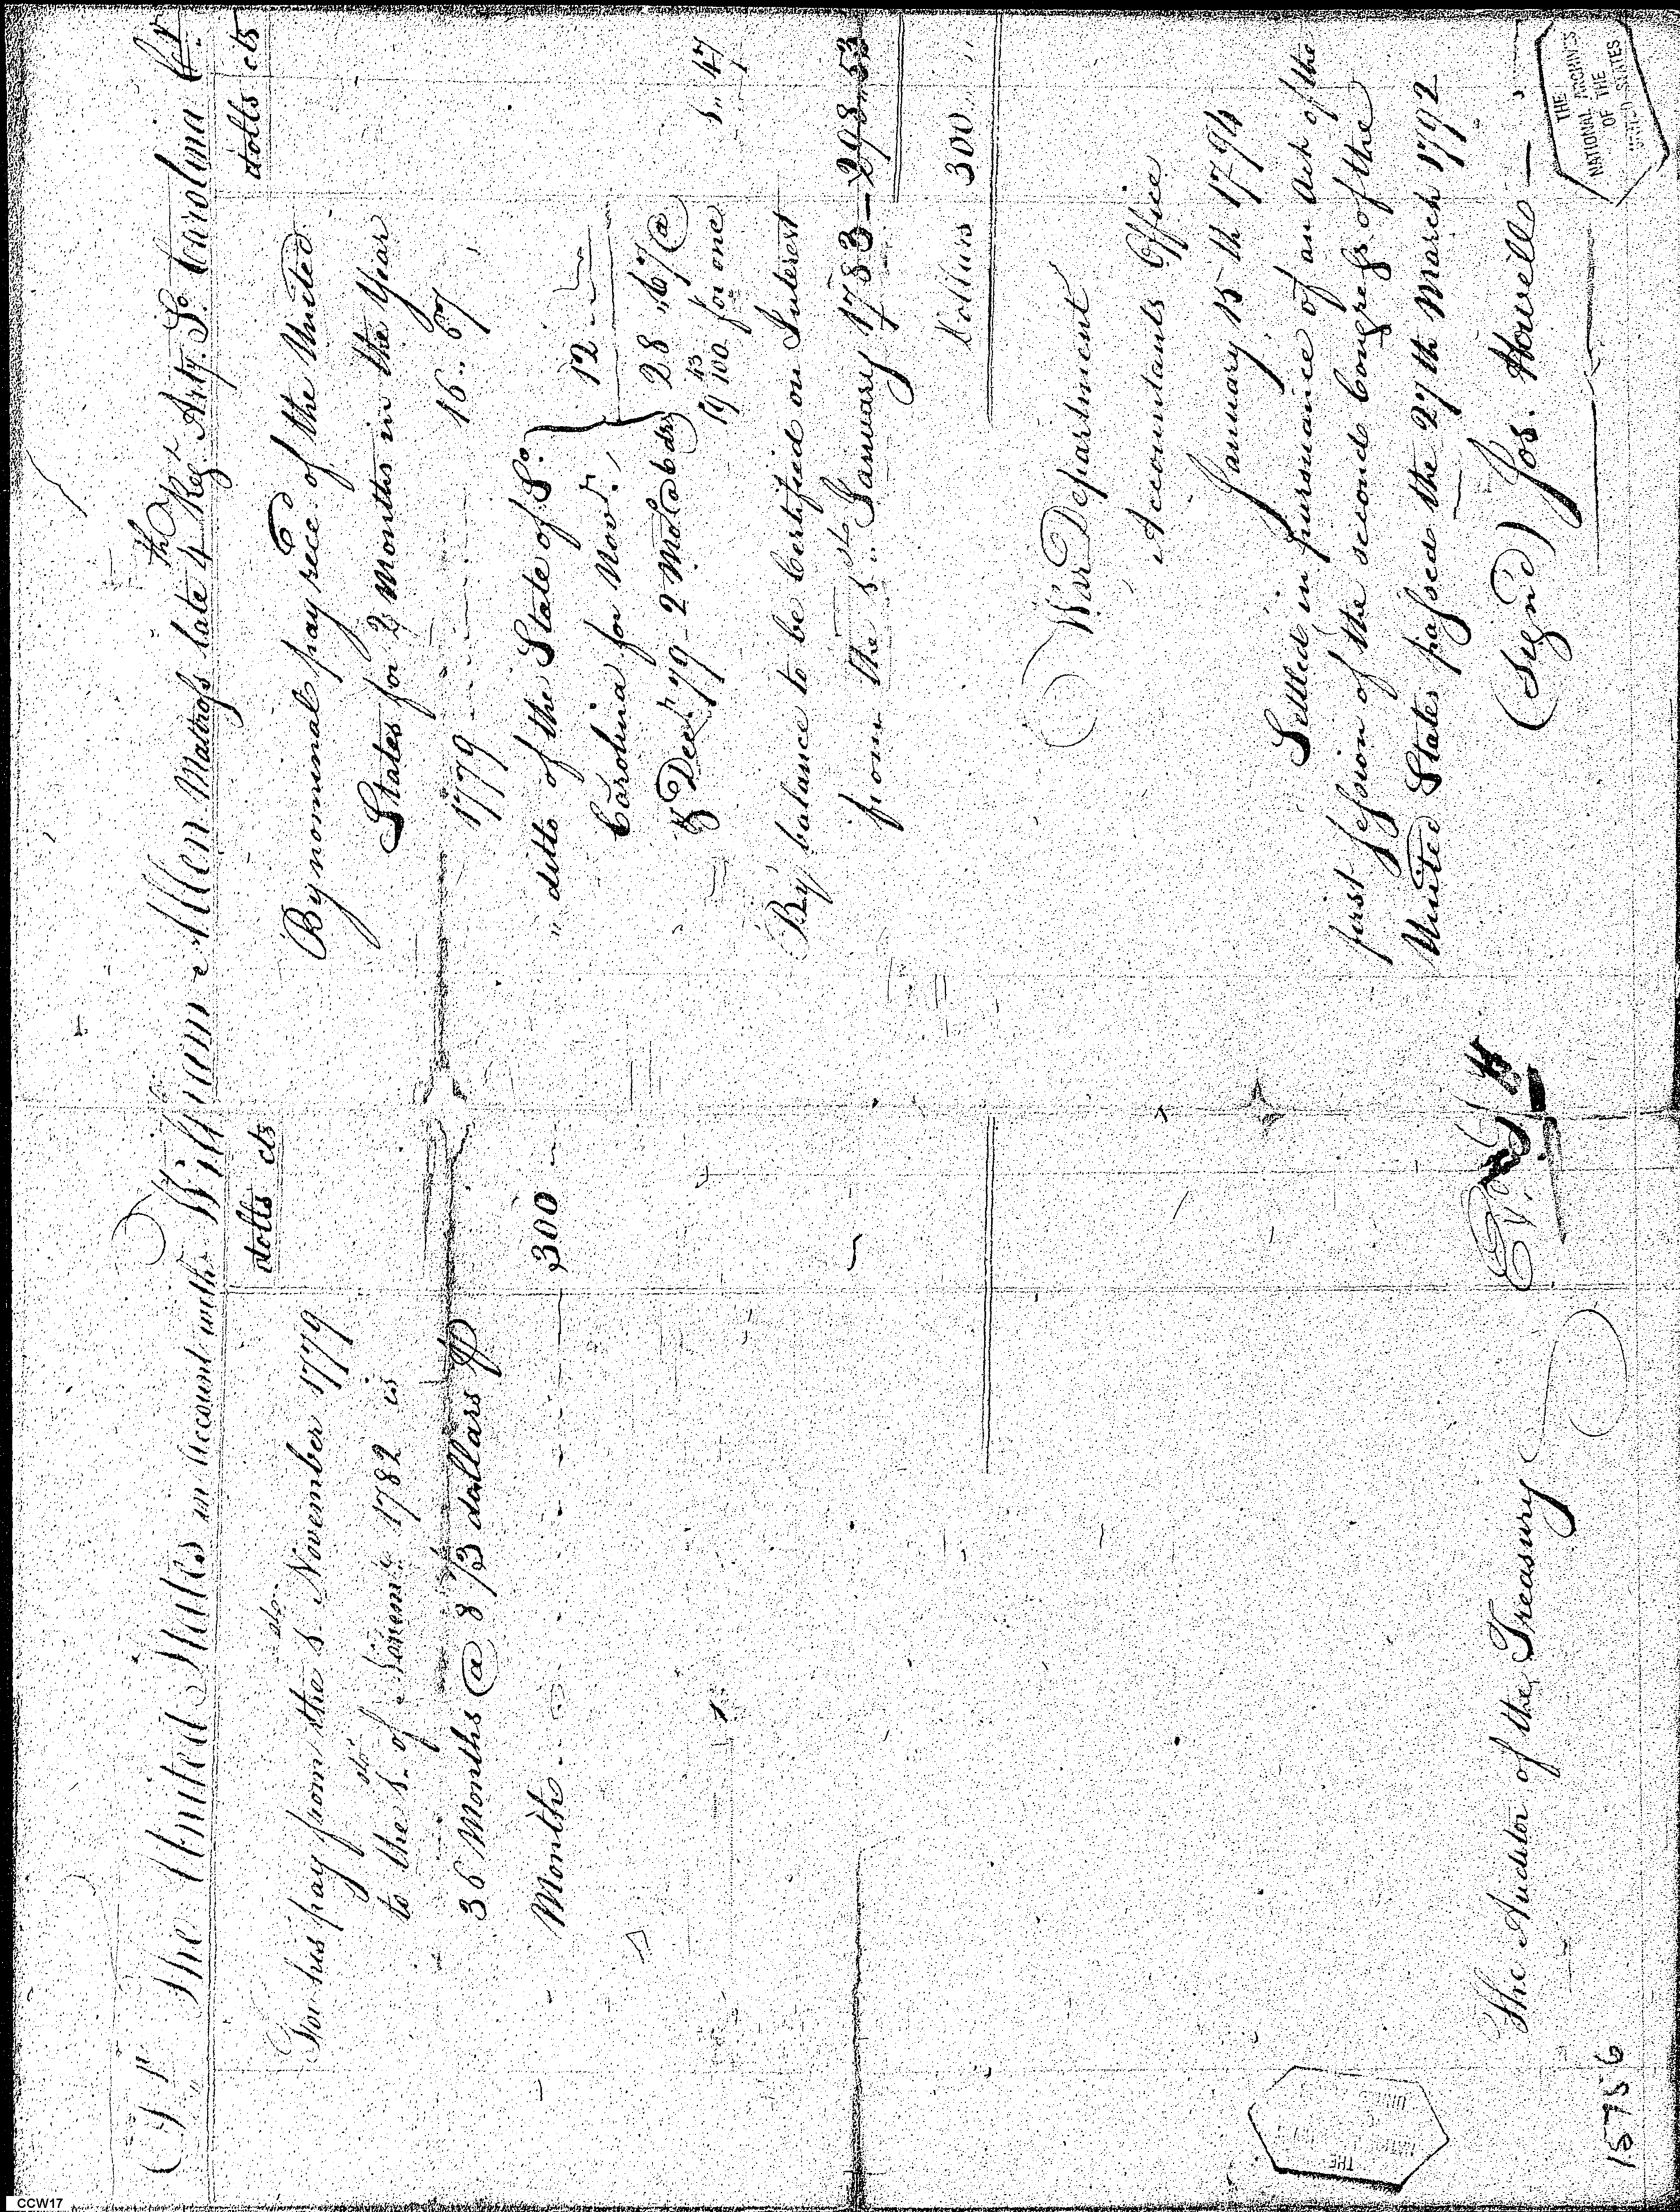 Dr The United States in account with William Allen Matross late 4th Regt Arty. So. Carolina Cr
dolls cts
For his pay from the 1st November 1779
to the 1st of Novemr 1782 is
36 Months @ 8 1/3 dollars ⅌
Month 300
dolls cts
By nominal pay rece'd of the United
States for 2 Months in the Year
1779 16.. 67
" ditto of the State of So.
Carolina for Novr.
& Decr. 79 2 Mo @ 6 drs 12
28 .. 67 @
19 43/100 for one 1.. 47
By balance to be Certified on Interest
from the 1st January 1783 — 298.. 53
Dollars 300..
War Department
Accountants Office
January 15th 1794
Settled in pursuance of an Act of the
first session of the second Congress of the
United States passed the 27th March 1792
(Signd) Jos. Howell
The Auditor of the Treasury
15756
THE
NATIONAL ARCHIVES
OF THE
UNITED STATES
CCW17